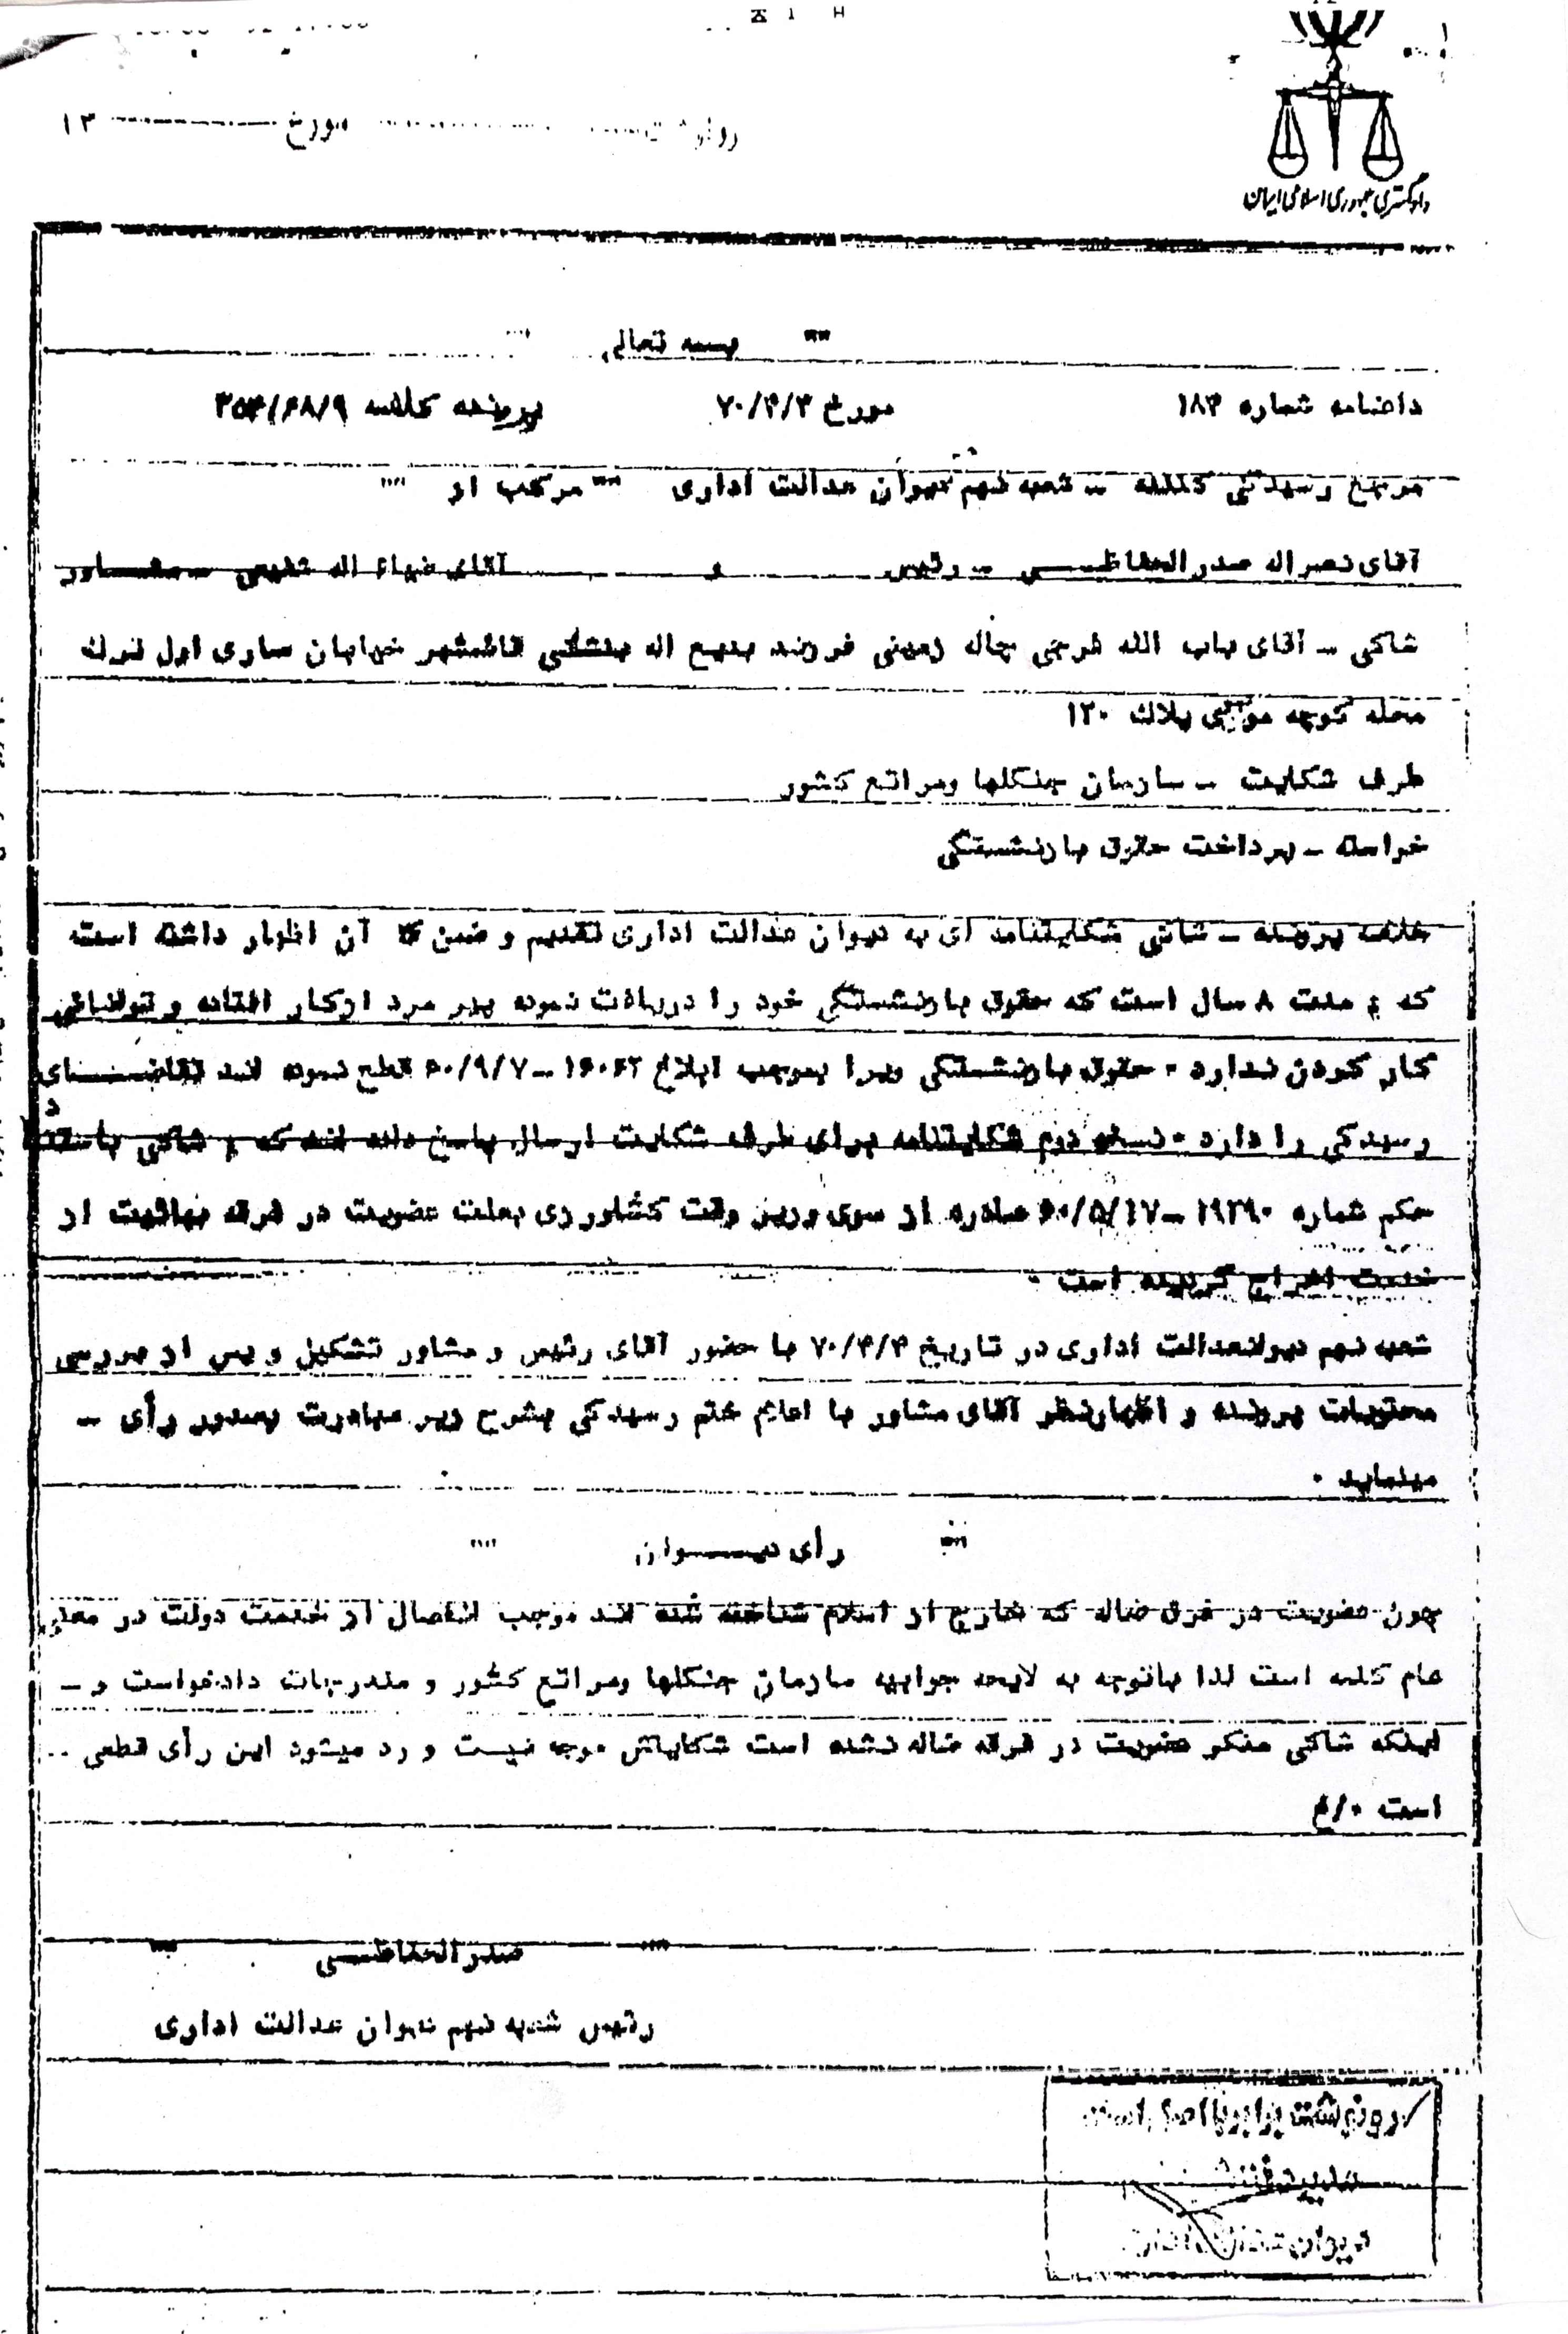 مورخ ۱۳
دادگستری جمهوری اسلامی ایران
بسمه تعالی
دادنامه شماره ۱۸۴ مورخ ۷۰/۴/۳ پرونده کلاسه ۳۵۴/۶۸/۹
مرجع رسیدگی کننده – شعبه نهم دیوان عدالت اداری "" مرکب از ""
آقای نصراله صدرالحفاظی – رئیس و آقای ضیاء اله نفیس – مشاور
شاکی – آقای باب الله فرجی چاله زمینی فرزند بدیع اله بنشانی قائمشهر خیابان ساری اول ترک
محله کوچه پلاک ۱۲۰
طرف شکایت – سازمان جنگلها ومراتع کشور
خواسته – پرداخت حقوق بازنشستگی
خلاصه پرونده – شاکی شکایتنامه ای به دیوان عدالت اداری تقدیم و ضمن آن اظهار داشته است
که مدت ۸ سال است که حقوق بازنشستگی خود را دریافت ننموده پیر مرد ازکار افتاده و توانائی
کار کردن ندارد ۰ حقوق بازنشستگی ویرا بموجب ابلاغ ۱۶۰۶۲–۶۰/۹/۷ قطع نموده اند تقاضای
رسیدگی را دارد ۰ نسخه دوم شکایتنامه برای طرف شکایت ارسال پاسخ داده اند که شاکی باستناد
حکم شماره ۱۹۲۹۰–۶۰/۵/۱۷ صادره از سوی وزیر وقت کشاورزی بعلت عضویت در فرقه بهائیت از
خدمت اخراج گردیده است ۰
شعبه نهم دیوانعدالت اداری در تاریخ ۷۰/۴/۴ با حضور آقای رئیس و مشاور تشکیل و پس از بررسی
محتویات پرونده و اظهارنظر آقای مشاور با اعلام ختم رسیدگی بشرح زیر مبادرت بصدور رأی –
مینماید ۰
"" رأی دیوان ""
چون عضویت در فرق ضاله که خارج از اسلام شناخته شده اند موجب انفصال از خدمت دولت در معنی
عام کلمه است لذا باتوجه به لایحه جوابیه سازمان جنگلها ومراتع کشور و مندرجات دادخواست و –
اینکه شاکی منکر عضویت در فرقه ضاله نشده است شکایتش موجه نیست و رد میشود این رأی قطعی
است ۰/م
صدرالحفاظی
رئیس شعبه نهم دیوان عدالت اداری
رونوشت برابر با اصل است
دیوان عدالت اداری